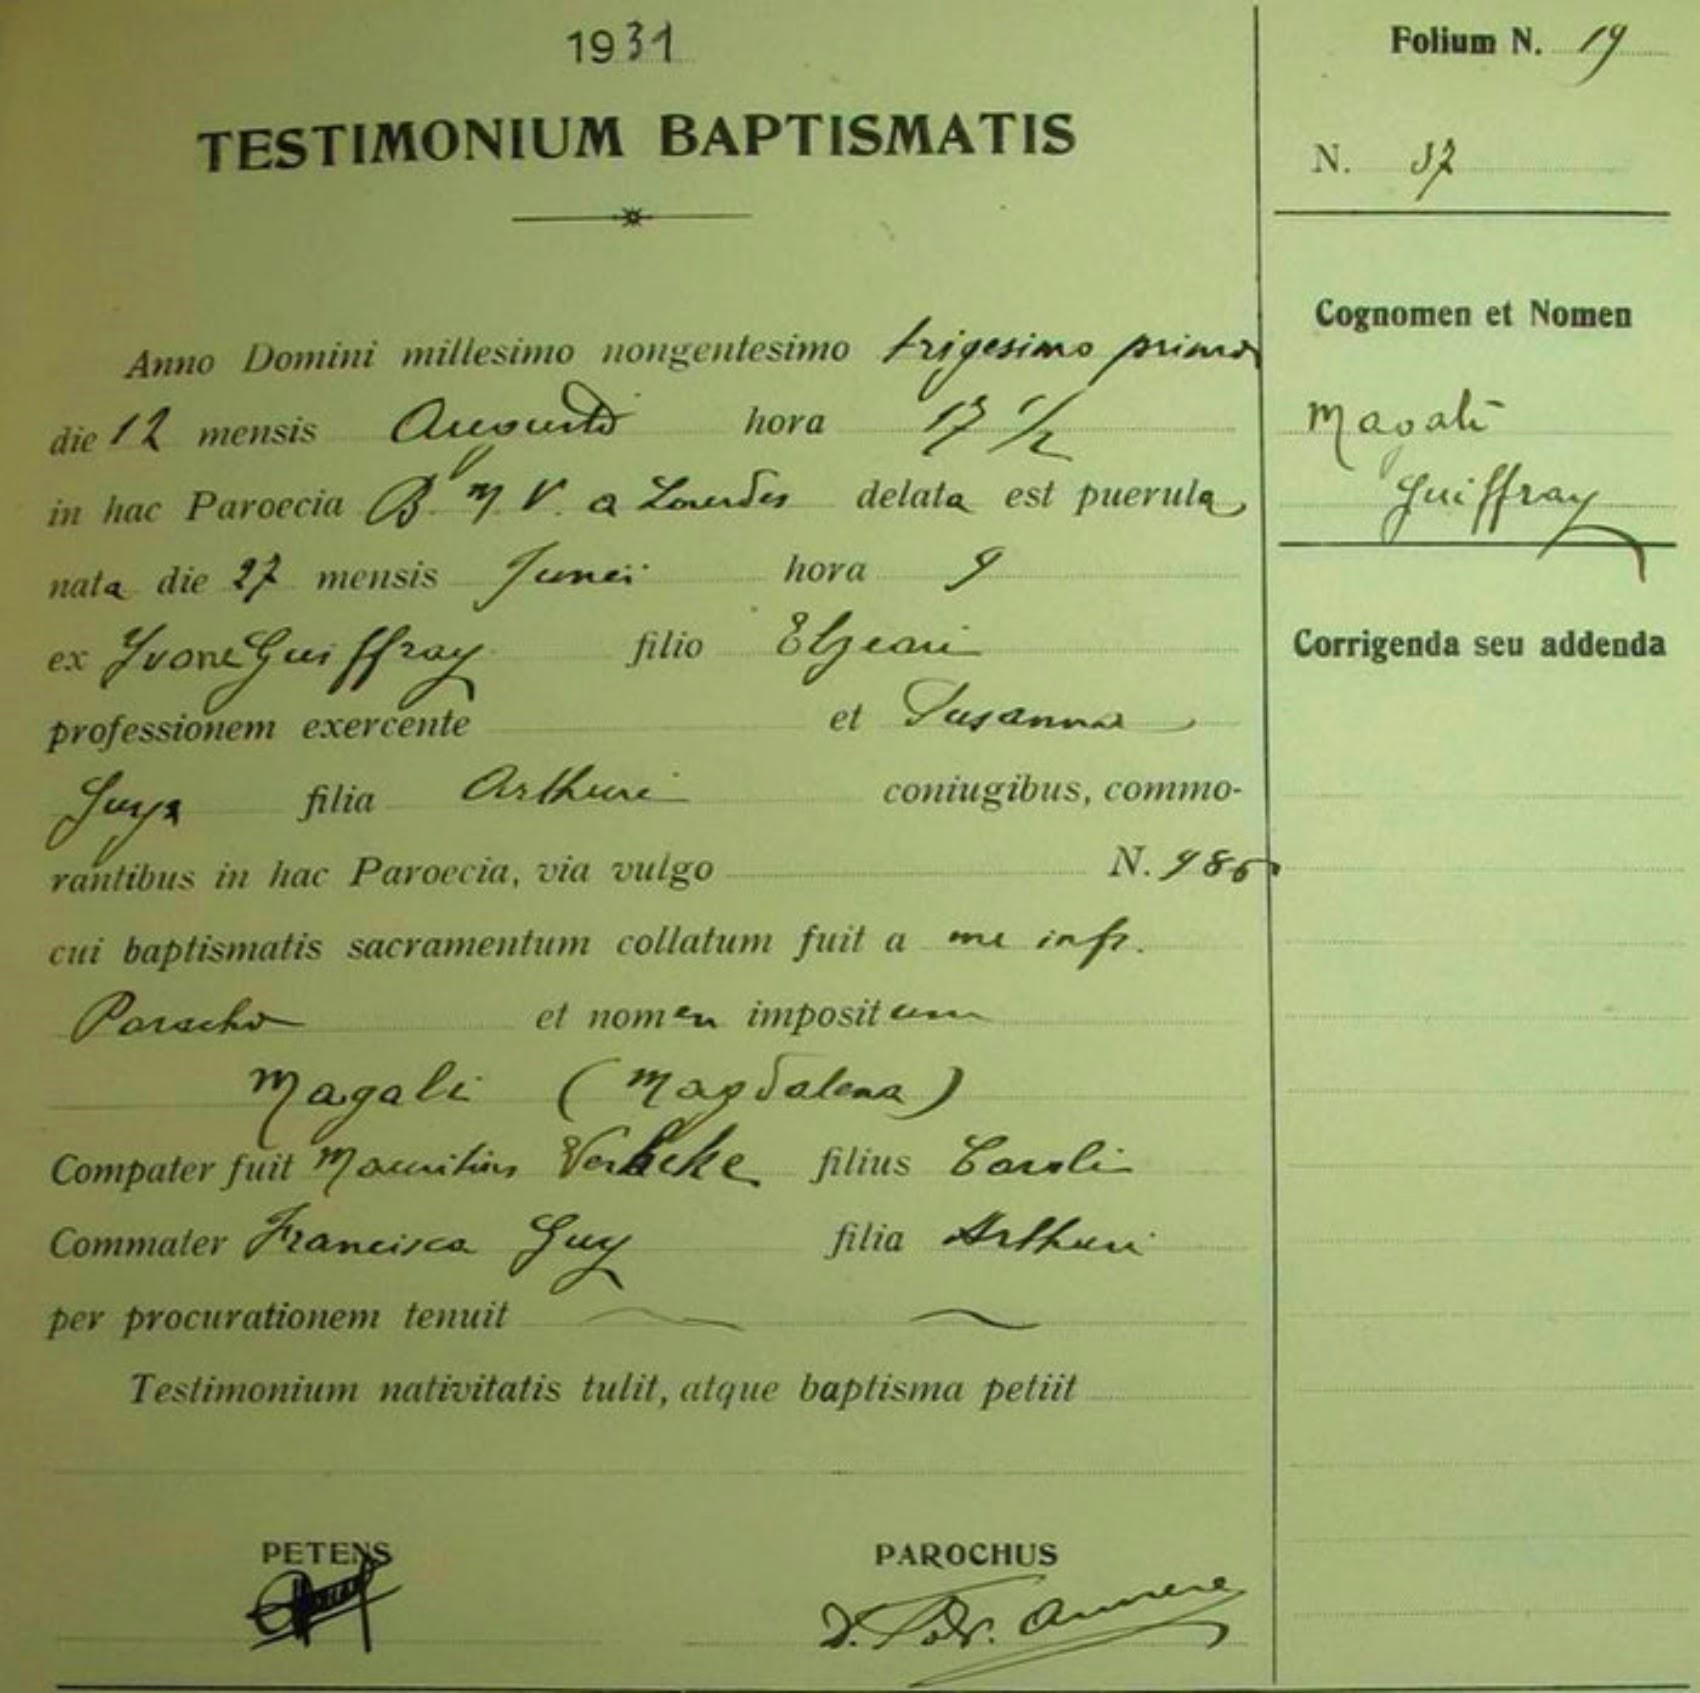 1931
TESTIMONIUM BAPTISMATIS
Anno Domini millesimo nongentesimo trigesimo primo
die 12 mensis Augusti hora 17 1/2
in hac Paroecia B. M. V. a Lourdes delata est puerula
nata die 27 mensis Junii hora 9
ex Yvone Guiffray filio Elzeari
professionem exercente et Susanna
Guys filia Arthuri coniugibus, commo-
rantibus in hac Paroecia, via vulgo N.
cui baptismatis sacramentum collatum fuit a me infr.
Parocho et nomen impositum
Magali (Magdalena)
Compater fuit Mauritius filius Caroli
Commater Francisca Guy filia Arthuri
per procurationem tenuit
Testimonium nativitatis tulit, atque baptisma petiit
PETENS
PAROCHUS
Folium N. 19
N. 37
Cognomen et Nomen
Magali
Guiffray
Corrigenda seu addenda